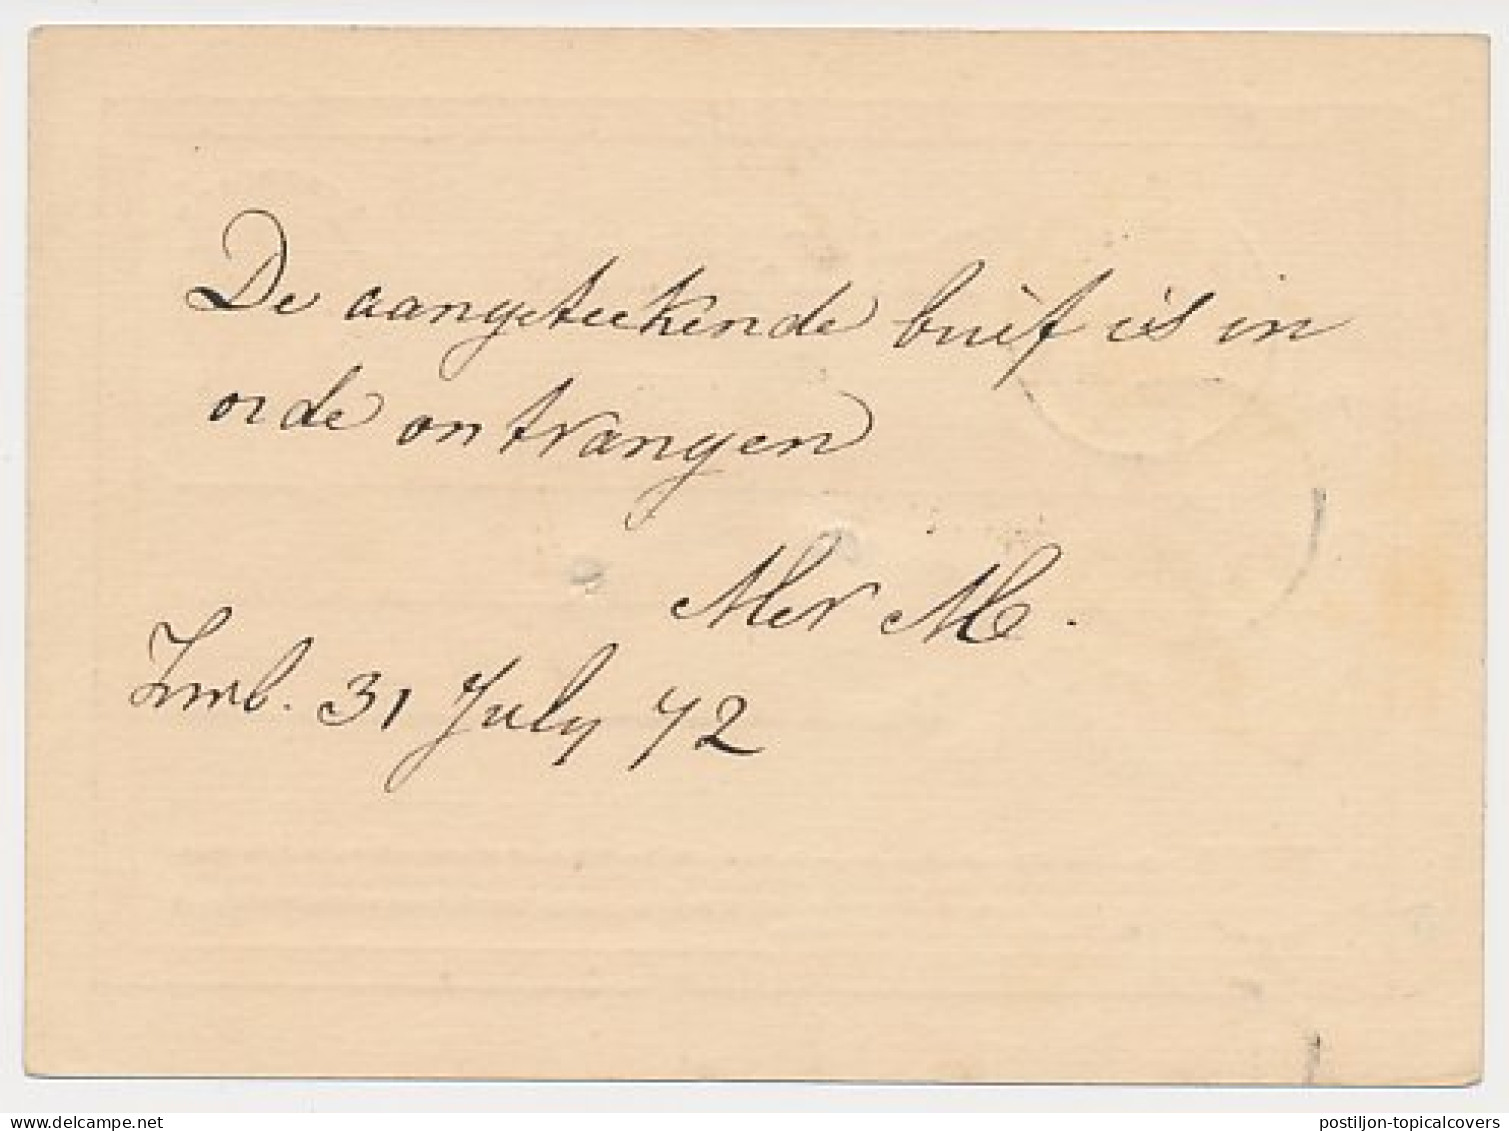 De aangeteekende brief is in
orde ontvangen
31 July 72
www.delcampe.net
postiljon-topicalcovers